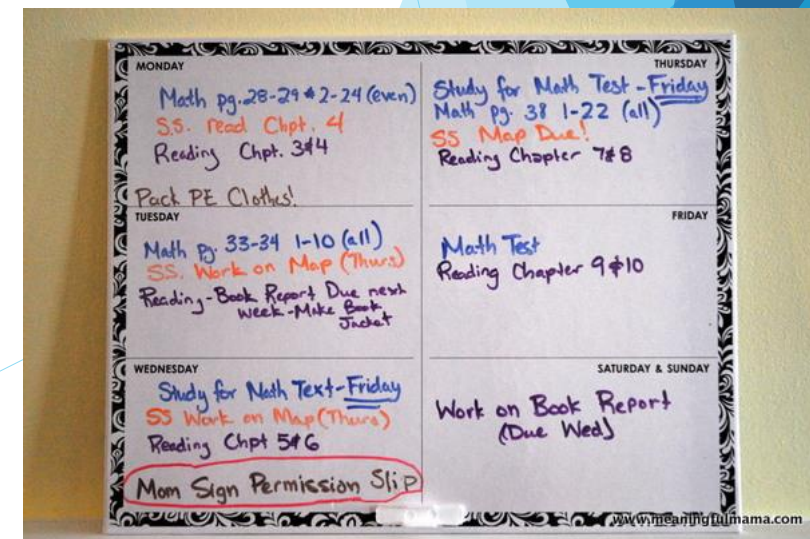 MONDAY
Math pg. 28-29 # 2-24 (even)
S.S. read Chpt. 4
Reading Chpt. 3&4
Pack PE Clothes!
TUESDAY
Math pg. 33-34 1-10 (all)
SS. Work on Map (Thurs)
Reading-Book Report Due next
week-Make Book
Jacket
WEDNESDAY
Study for Math Text-Friday
SS Work on Map (Thurs)
Reading Chpt 5&6
Mom Sign Permission Slip
THURSDAY
Study for Math Test-Friday
Math pg. 38 1-22 (all)
SS Map Due!
Reading Chapter 7&8
FRIDAY
Math Test
Reading Chapter 9&10
SATURDAY & SUNDAY
Work on Book Report
(Due Wed)
www.meaningfulmama.com